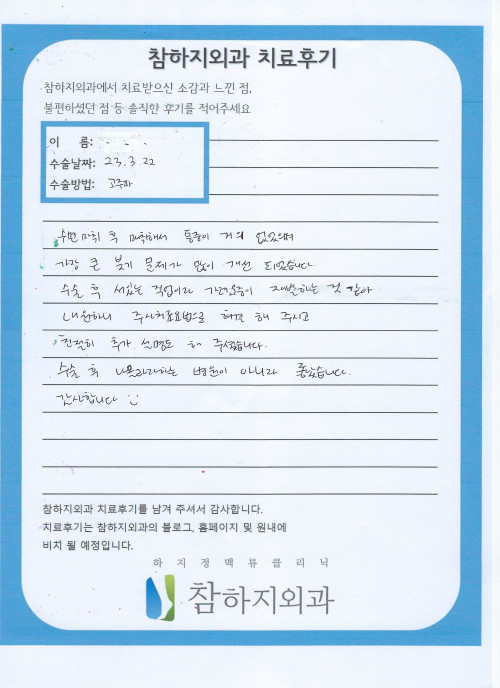 참하지외과 치료후기
참하지외과에서 치료받으신 소감과 느낀 점,
불편하셨던 점 등 솔직한 후기를 적어주세요
이 름:
수술날짜: 23.3.22
수술방법: 고주파
수면마취 후 마취해서 통증이 거의 없었으며
가장 큰 붓기 문제가 많이 개선 되었습니다
수술 후 서있는 직업이라 가려움증이 재발하는 것 같아
내원하니 주사치료요법으로 해결 해 주시고
친절히 추가 설명도 해 주셨습니다.
수술 후 나몰라라하는 병원이 아니라 좋았습니다.
감사합니다
참하지외과 치료후기를 남겨 주셔서 감사합니다.
치료후기는 참하지외과의 블로그, 홈페이지 및 원내에
비치 될 예정입니다.
하지정맥류클리닉
참하지외과